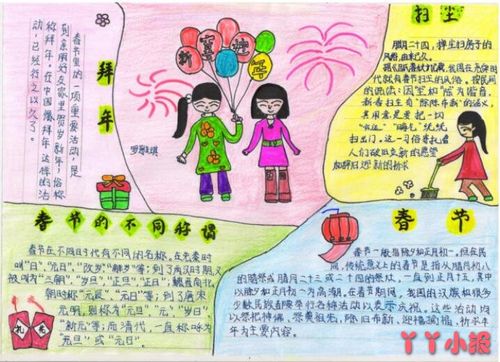 拜年
春节里的一项重要活动，是
到亲朋好友家里贺岁新年，俗称
称拜年。在中国拜年这样的活
动，已经持之以久了。
新
年
扫尘
腊月二十四，掸尘扫房子的
风俗，由来已久。
我国在尧舜时
代就有春节扫尘的风俗。按民间
的说法：因"尘"谐音，
新春扫尘有"除陈布新"的涵义，
其用意是要把一切
"穷运"、"晦气"统统
扫出门。这一习俗寄托着
人们破旧立新的愿望
和辞旧迎新的祈求
春节的不同称谓
春节在不同时代有不同的名称。在先秦时
叫"日"、"元日"、"改岁""献岁"等；到了两汉时期又
被叫为"三朝"、"岁旦""正旦""正日"；魏晋南北
朝时称"元辰"、"元日"等；到了唐宋
元明，则称为"元旦"、"元"、"岁日"
"新元"等；而清代，一直称
元旦"或"元日"。
礼
花
春节
春节一般指除夕和正月初一。但在民
间，传统意义上的春节是指从腊月初八
的腊祭或腊月二十三或二十四的祭灶，一直到正月十五，其中
以除夕和正月初一为高潮。在春节期间，我国的汉族和很多
少数民族都要举行各种活动以表示庆祝。这些活动均
以祭祀神佛、祭奠祖先、除旧布新、迎禧接福、祈求丰
年为主要内容。
丫丫小报